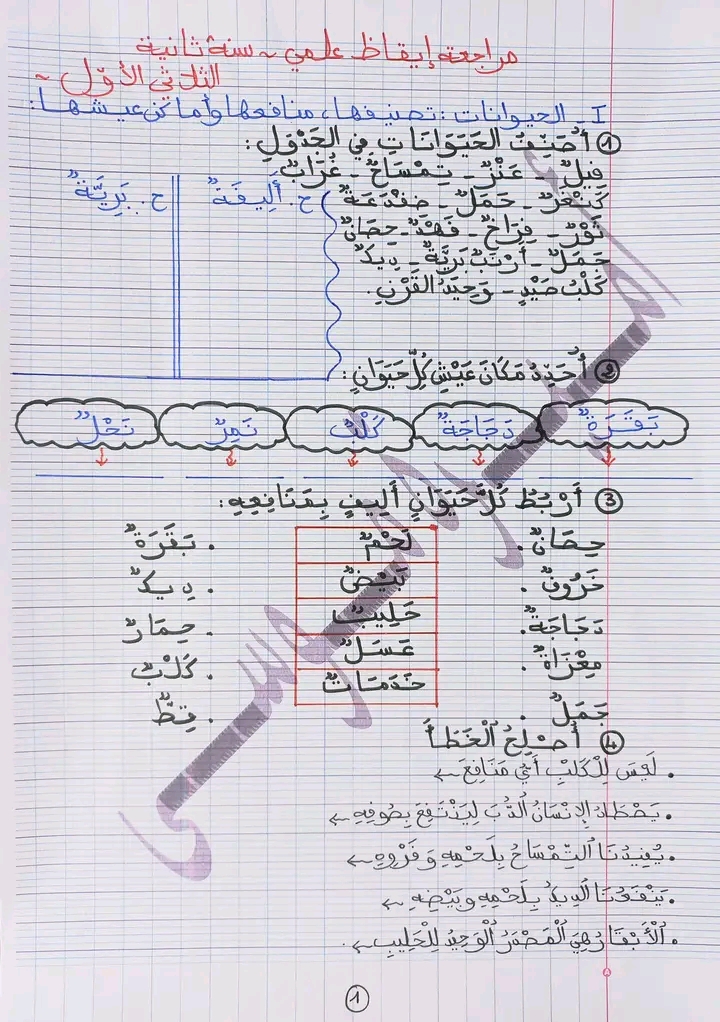 مراجعة إيقاظ علمي ~ سنة ثانية
الثلاثي الأوّل ~
I - الحيوانات : تصنيفها، منافعها وأماكن عيشها:
① أُصَنِّفُ الحَيَوَانَاتِ فِي الجَدْوَلِ :
فِيلٌ - عَنْزٌ - تِمْسَاحٌ - غُرَابٌ
كَنْغَرٌ - حَمَلٌ - ضِفْدَعَةٌ
ثَوْرٌ - فِرَاخٌ - فَهْدٌ - حِصَانٌ
جَمَلٌ - أَرْنَبٌ بَرِيَّةٌ - دِيكٌ
كَلْبُ صَيْدٍ - وَحِيدُ القَرْنِ.
ح. أَلِيفَةٌ
ح. بَرِيَّةٌ
② أُحَدِّدُ مَكَانَ عَيْشِ كُلِّ حَيَوَانٍ :
بَقَرَةٌ
دَجَاجَةٌ
كَلْبٌ
نَمِرٌ
نَحْلٌ
③ أَرْبُطُ كُلَّ حَيَوَانٍ أَلِيفٍ بِمَنَافِعِهِ :
حِصَانٌ . لَحْمٌ . بَقَرَةٌ
خَرُوفٌ . بَيْضٌ . دِيكٌ
دَجَاجَةٌ. حَلِيبٌ . حِمَارٌ
مِعْزَاةٌ . عَسَلٌ . كَلْبٌ
جَمَلٌ . خَدَمَاتٌ . قِطٌّ
④ أُصْلِحُ الْخَطَأَ
. لَيْسَ لِلْكَلْبِ أَيُّ مَنَافِعَ ←
. يَصْطَادُ الإِنْسَانُ الدُّبَ لِيَنْتَفِعَ بِصُوفِهِ ←
. يُفِيدُنَا التِّمْسَاحُ بِلَحْمِهِ وَفَرْوِهِ ←
. يَنْفَعُنَا الدِيكُ بِلَحْمِهِ وبَيْضِهِ ←
. الْأَبْقَارُ هِيَ الْمَصْدَرُ الْوَحِيدُ لِلْحَلِيبِ ←.
1